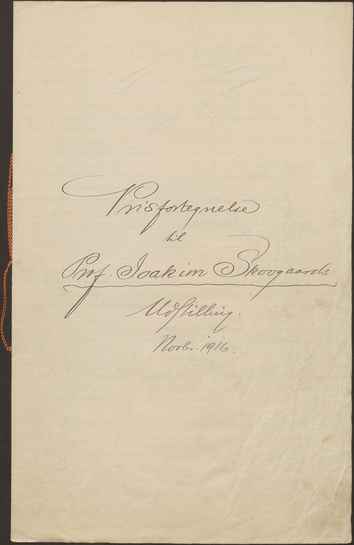 Prisfortegnelse
til
Prof Joakim Skovgaards
Udstilling.
Novb. 1916.